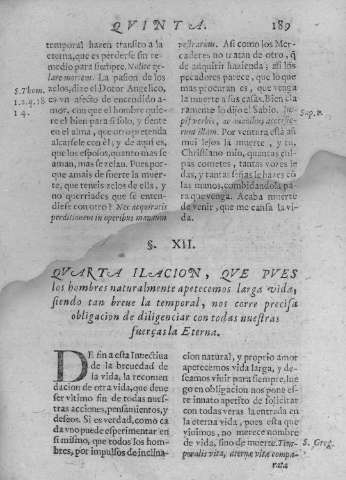 QVINTA. 189
temporal hazen transito a la
eterna, que es perderse sin re-
medio para siempre. Nolite ze-
lare mortem. La pasion de los
zelos, dize el Dotor Angelico,
es vn afecto de encendido a-
mor, con que el hombre quie-
re el bien para si solo, y siente
en el alma, que otro pretenda
alcarsele con èl; y de aqui es,
que los esposos, quanto mas se
aman, mas se zelan. Pues por-
que amais de suerte la muerte,
que teneis zelos de ella, y
no querriades que se enten-
diesse con otro? Nec acquiratis
perditionem in operibus manuum
S. Thom.
1. 2. q. 28
14.
vestrarum. Assi como los Mer-
caderes no tratan de otro, q̃
de adquirir hazienda; assi los
pecadores parece, que lo que
mas procuran es, que venga
la muerte a sus casas. Bien cla-
ramente lo dijo el Sabio. Im-
pij verbis, ac manibus accersie-
runt illam. Por ventura està a-
mui lejos la muerte, y tu,
Christiano mio, quantas cul-
pas cometes, tantas vozes le
das, y tantas señas le hazes cõ
las manos, combidandola pa-
ra que venga. Acaba muerte
de venir, que me cansa la vi-
da.
Sap.
§. XII.
QVARTA ILACION, QVE PVES
los hombres naturalmente apetecemos larga vida,
siendo tan breue la temporal, nos corre precisa
obligacion de diligenciar con todas nuestras
fuerças la Eterna.
DE fin a esta Inuectiua
de la breuedad de
la vida, la recomen
dacion de otra vida, que deue
ser vltimo fin de todas nues-
tras acciones, pensamientos, y
deseos. Si es verdad, como ca-
da vno puede esperimentar en
si mismo, que todos los hom-
bres, por impulsos de inclina-
cion natural, y proprio amor
apetecemos vida larga, y de-
seamos viuir para siempre, lue
go en obligacion nos pone es-
te innato apetito de solicitar
con todas veras la entrada en
la eterna vida, pues esta que
viuimos, no merece nombre
de vida, sino de muerte. Tem-
poralis vita, æternæ vitæ compa-
rata
S. Greg.